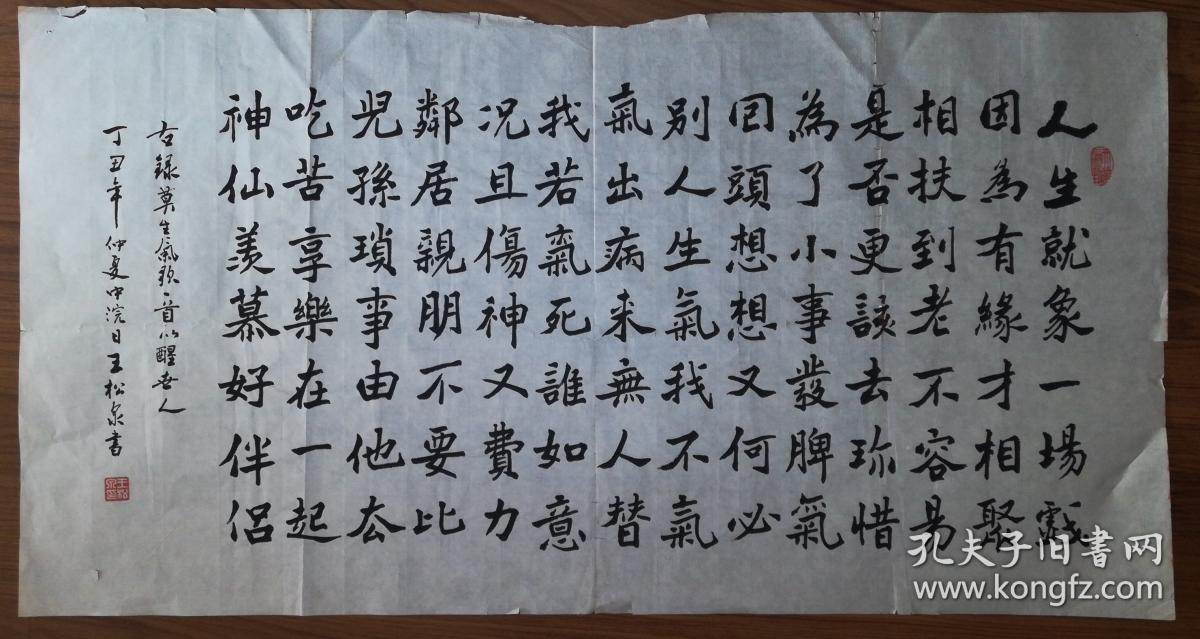 人生就象一場戲
因為有緣才相聚
相扶到老不容易
是否更該去珎惜
為了小事發脾氣
回頭想想又何必
别人生氣我不氣
氣出病来無人替
我若氣死誰如意
况且傷神又費力
鄰居親朋不要比
児孫瑣事由他去
吃苦享樂在一起
神仙羡慕好伴侣
右録莫生氣歌一首以醒世人
丁丑年仲夏中浣日王松泉書
孔夫子旧书网
www.kongfz.com